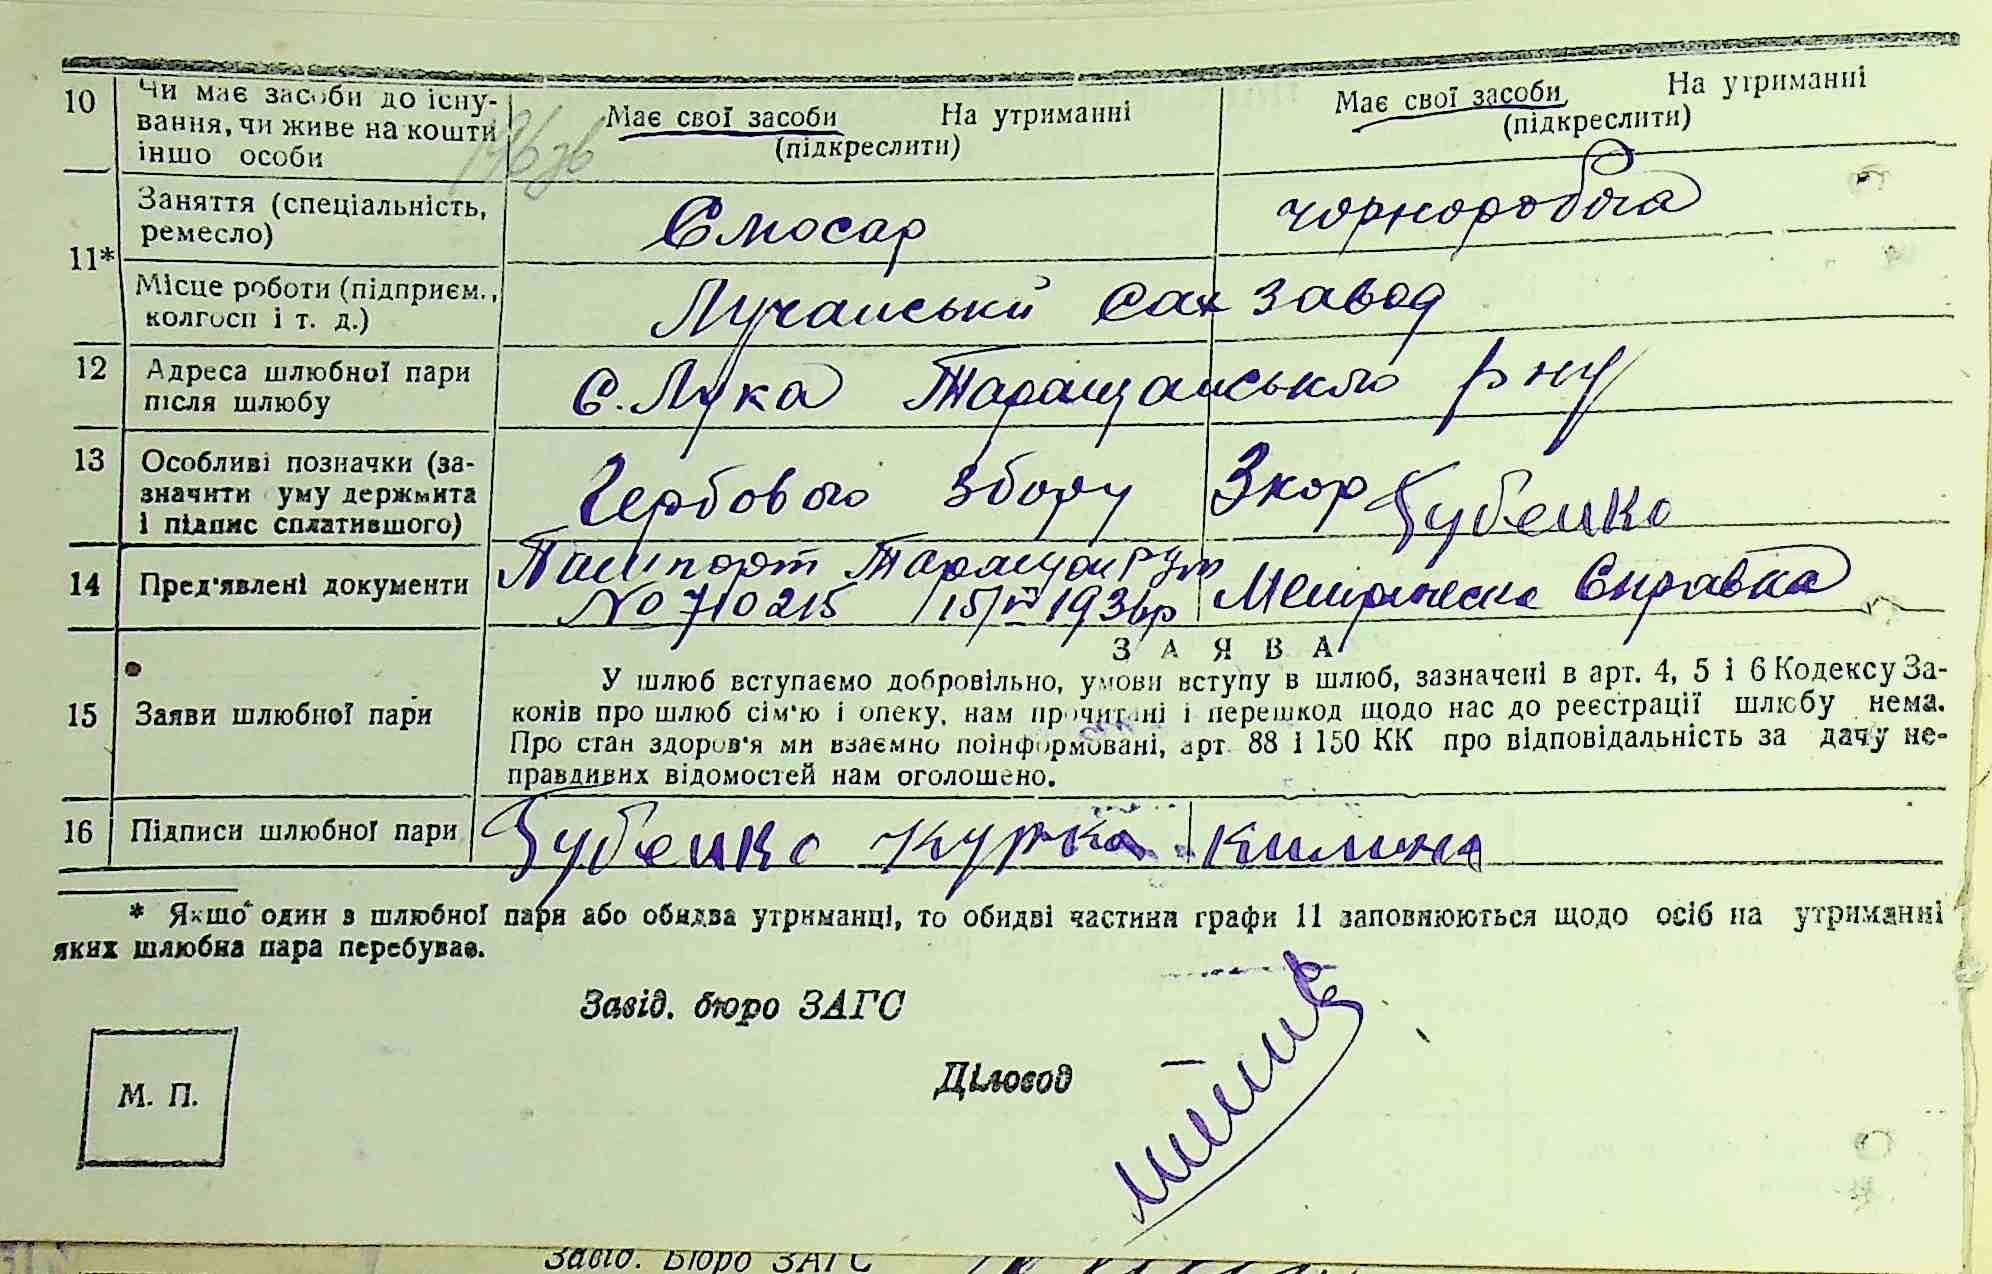 10 Чи має засоби до існу-
вання, чи живе на кошти
іншо особи
Має свої засоби На утриманні
(підкреслити)
Має свої засоби На утриманні
(підкреслити)
11*
Заняття (спеціальність,
ремесло)
Слюсар
чорноробоча
Місце роботи (підприєм.,
колгосп і т. д.)
Лучанський Сах завод
12 Адреса шлюбної пари
після шлюбу
С. Лука Таращанського р ну
13 Особливі позначки (за-
значити уму держмита
і підпис сплатившого)
Гербового збору 3 кор Зубенко
14 Пред'явлені документи
Пашпорт
No 710215
Справка
15 Заяви шлюбної пари
ЗАЯВА
У шлюб вступаємо добровільно, умови вступу в шлюб, зазначені в арт. 4, 5 і 6 Кодексу За-
конів про шлюб сім'ю і опеку, нам прочитані і перешкод щодо нас до реєстрації шлюбу нема.
Про стан здоров'я ми взаємно поінформовані, арт. 88 і 150 КК про відповідальність за дачу не-
правдивих відомостей нам оголошено.
16 Підписи шлюбної пари
Зубенко Курка Килина
* Якшо один з шлюбної пари або обидва утриманці, то обидві частини графи 11 заповнюються щодо осіб на утриманні
яких шлюбна пара перебуває.
Завід. бюро ЗАГС
Діловод
М. П.
Завід. Бюро ЗАГС